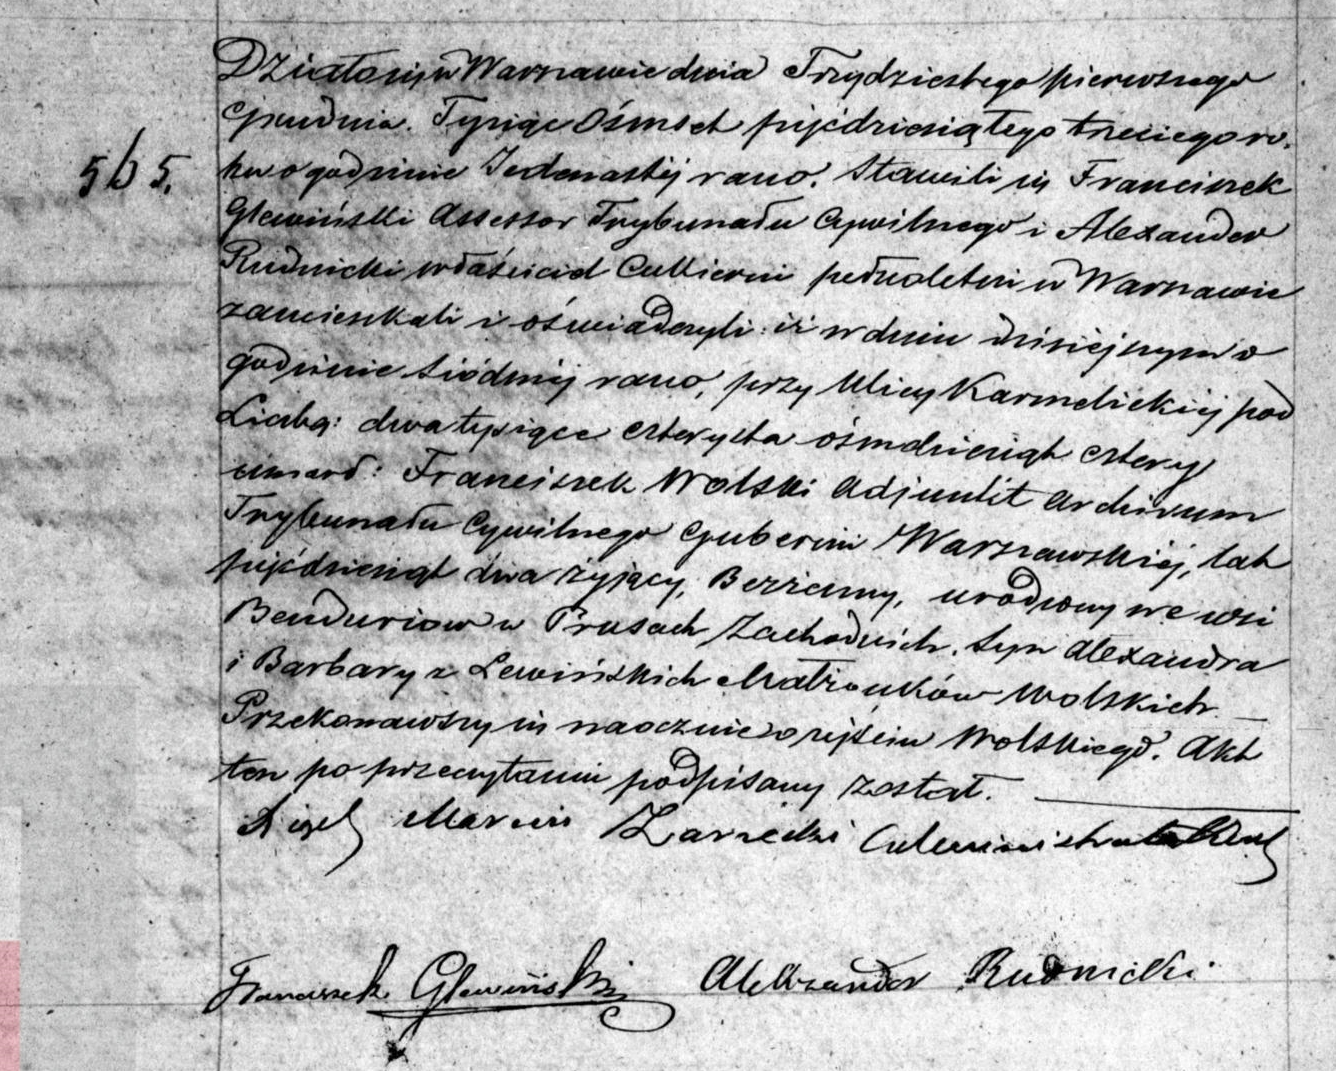 Działo się w Warszawie dnia Trzydziestego pierwszego
Grudnia. Tysiąc Ośmset pięćdziesiątego trzeciego ro-
565. ku o godzinie Jedenastej rano. Stawili się Franciszek
Glewiński Assessor Trybunału Cywilnego i Alexander
Rudnicki właściciel Cukierni pełnoletni w Warszawie
zamieszkali i oświadczyli: iż w dniu dzisiejszym o
godzinie siódmej rano, przy Ulicy Karmelickiej pod
Liczbą: dwa tysiące czterysta ośmdziesiąt cztery
umarł: Franciszek Wolski Adjunkt Archiwum
Trybunału Cywilnego Gubernii Warszawskiéj, lat
pięćdziesiąt dwa żyjący, Bezżenny, urodzony we wsi
w Prusach Zachodnich. Syn Alexandra
i Barbary z Lewińskich Małżonków Wolskich
Przekonawszy się naocznie o zejściu Wolskiego. Akt
ten po przeczytaniu podpisany został.
Marcin Zarzecki
Franciszek Glewiński Alexander Rudnicki